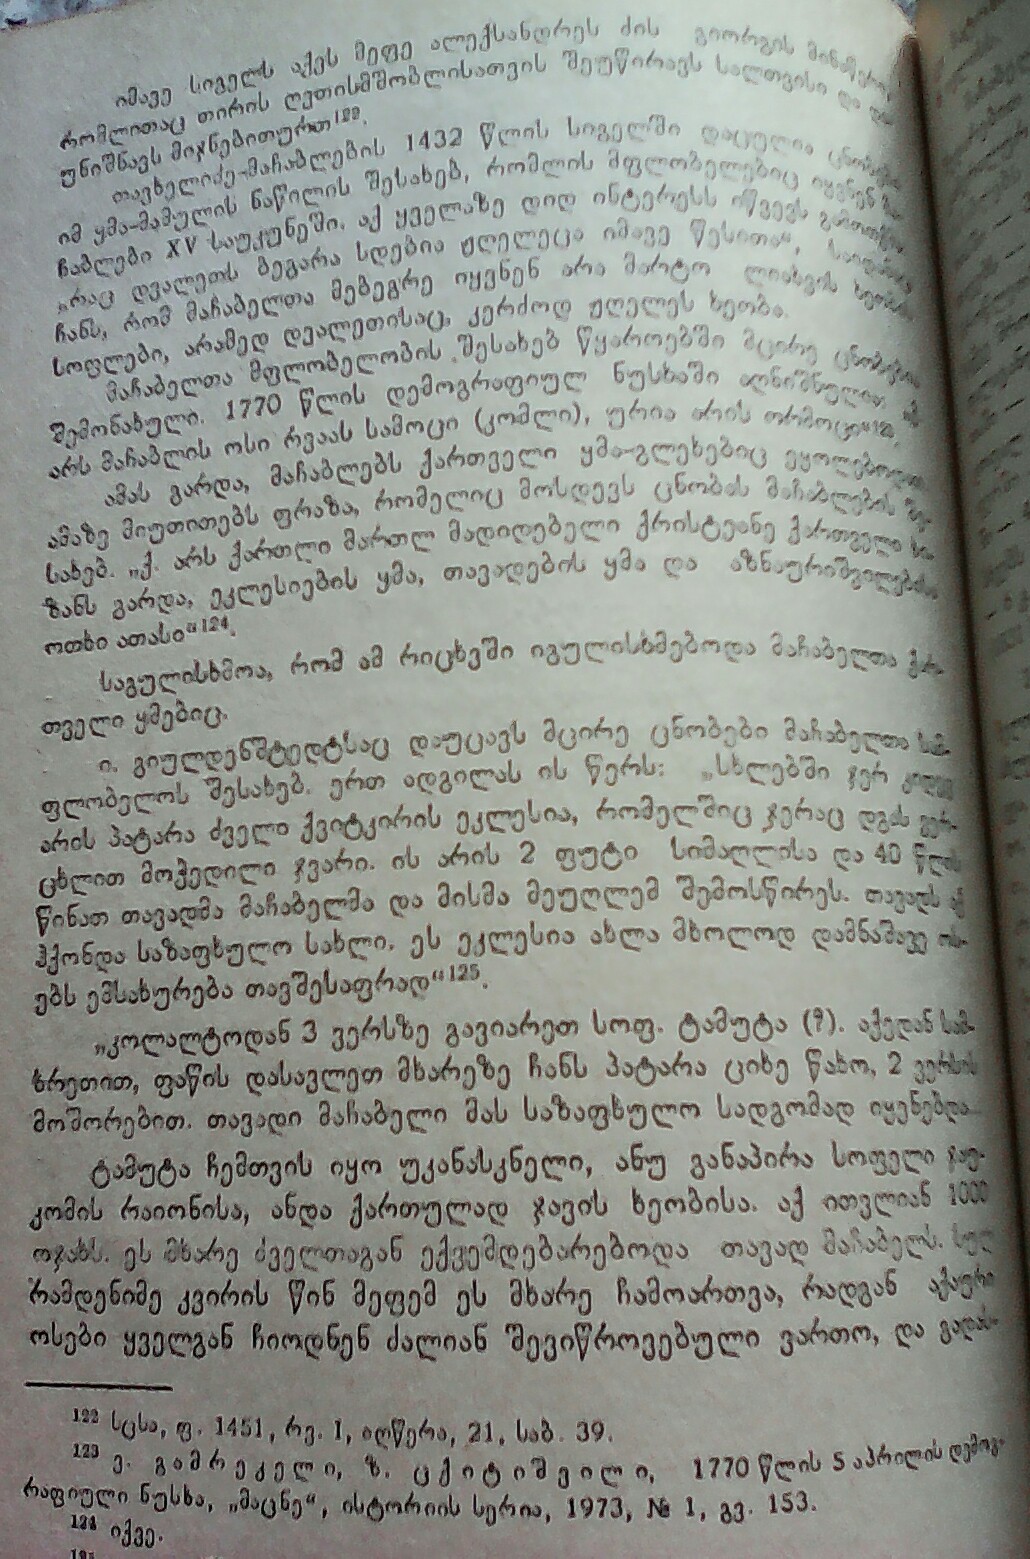 იმავე სიგელს აქვს მეფე ალექსანდრეს ძის გიორგის მინაწერი,
რომლითაც თირის ღვთისმშობლისათვის შეუწირავს სალთვისი და და
უნიშნავს მიჯნებითურთ¹²².
თავხელიძე-მაჩაბლების 1432 წლის სიგელში დაცულია ცნობები
იმ ყმა-მამულის ნაწილის შესახებ, რომლის მფლობელებიც იყვნენ მა-
ჩაბლები XV საუკუნეში. აქ ყველაზე დიდ ინტერესს იწვევს გამოთქმა
„რაც დვალეთს ბეგარა სდებია ჟღელეცა იმავე წესითა“, საიდანაც
ჩანს, რომ მაჩაბელთა მებეგრე იყვნენ არა მარტო ლიახვის ხეობის
სოფლები, არამედ დვალეთისაც, კერძოდ ჟღელეს ხეობა.
მაჩაბელთა მფლობელობის შესახებ წყაროებში მცირე ცნობებია
შემონახული. 1770 წლის დემოგრაფიულ ნუსხაში აღნიშნულია
არს მაჩაბლის ოსი რვაას სამოცი (კომლი), ურია არის ორმოცი“¹²³.
ამას გარდა, მაჩაბლებს ქართველი ყმა-გლეხებიც ეყოლებოდათ
ამაზე მიუთითებს ფრაზა, რომელიც მოსდევს ცნობას მაჩაბლების შე-
სახებ. „ქ. არს ქართლი მართლ მადიდებელი ქრისტეანე ქართველი
ზანს გარდა, ეკლესიების ყმა, თავადების ყმა და აზნაურიშვილების
ოთხი ათასი“¹²⁴.
საგულისხმოა, რომ ამ რიცხვში იგულისხმებოდა მაჩაბელთა ქარ-
თველი ყმებიც.
ი. გიულდენშტედტსაც დაუცავს მცირე ცნობები მაჩაბელთა სამ-
ფლობელოს შესახებ. ერთ ადგილას ის წერს: „სხლებში ჯერ კიდევ
არის პატარა ძველი ქვიტკირის ეკლესია, რომელშიც ჯერაც დგას ვერ-
ცხლით მოჭედილი ჯვარი. ის არის 2 ფუტი სიმაღლისა და 40 წლის
წინათ თავადმა მაჩაბელმა და მისმა მეუღლემ შემოსწირეს. თავადს აქ
ჰქონდა საზაფხულო სახლი. ეს ეკლესია ახლა მხოლოდ დამნაშავე ოს-
ებს ემსახურება თავშესაფრად“¹²⁵.
„კოლალტოდან 3 ვერსზე გავიარეთ სოფ. ტამუტა (?). აქედან სამ-
ხრეთით, ფაწის დასავლეთ მხარეზე ჩანს პატარა ციხე წახო, 2 ვერსის
მოშორებით. თავადი მაჩაბელი მას საზაფხულო სადგომად იყენებდა...
ტამუტა ჩემთვის იყო უკანასკნელი, ანუ განაპირა სოფელი ჯაუ-
კომის რაიონისა, ანდა ქართულად ჯავის ხეობისა. აქ ითვლიან 1000
ოჯახს. ეს მხარე ძველთაგან ექვემდებარებოდა თავად მაჩაბელს. სულ
რამდენიმე კვირის წინ მეფემ ეს მხარე ჩამოართვა, რადგან აქაური
ოსები ყველგან ჩიოდნენ ძალიან შევიწროვებული ვართო, და გადას-
¹²² სცსა, ფ. 1451, რვ. I, აღწერა, 21, საბ. 39.
¹²³ ვ. გამრეკელი, ზ. ცქიტიშვილი, 1770 წლის 5 აპრილის დემოგ-
რაფიული ნუსხა, „მაცნე“, ისტორიის სერია, 1973, № 1, გვ. 153.
¹²⁴ იქვე.